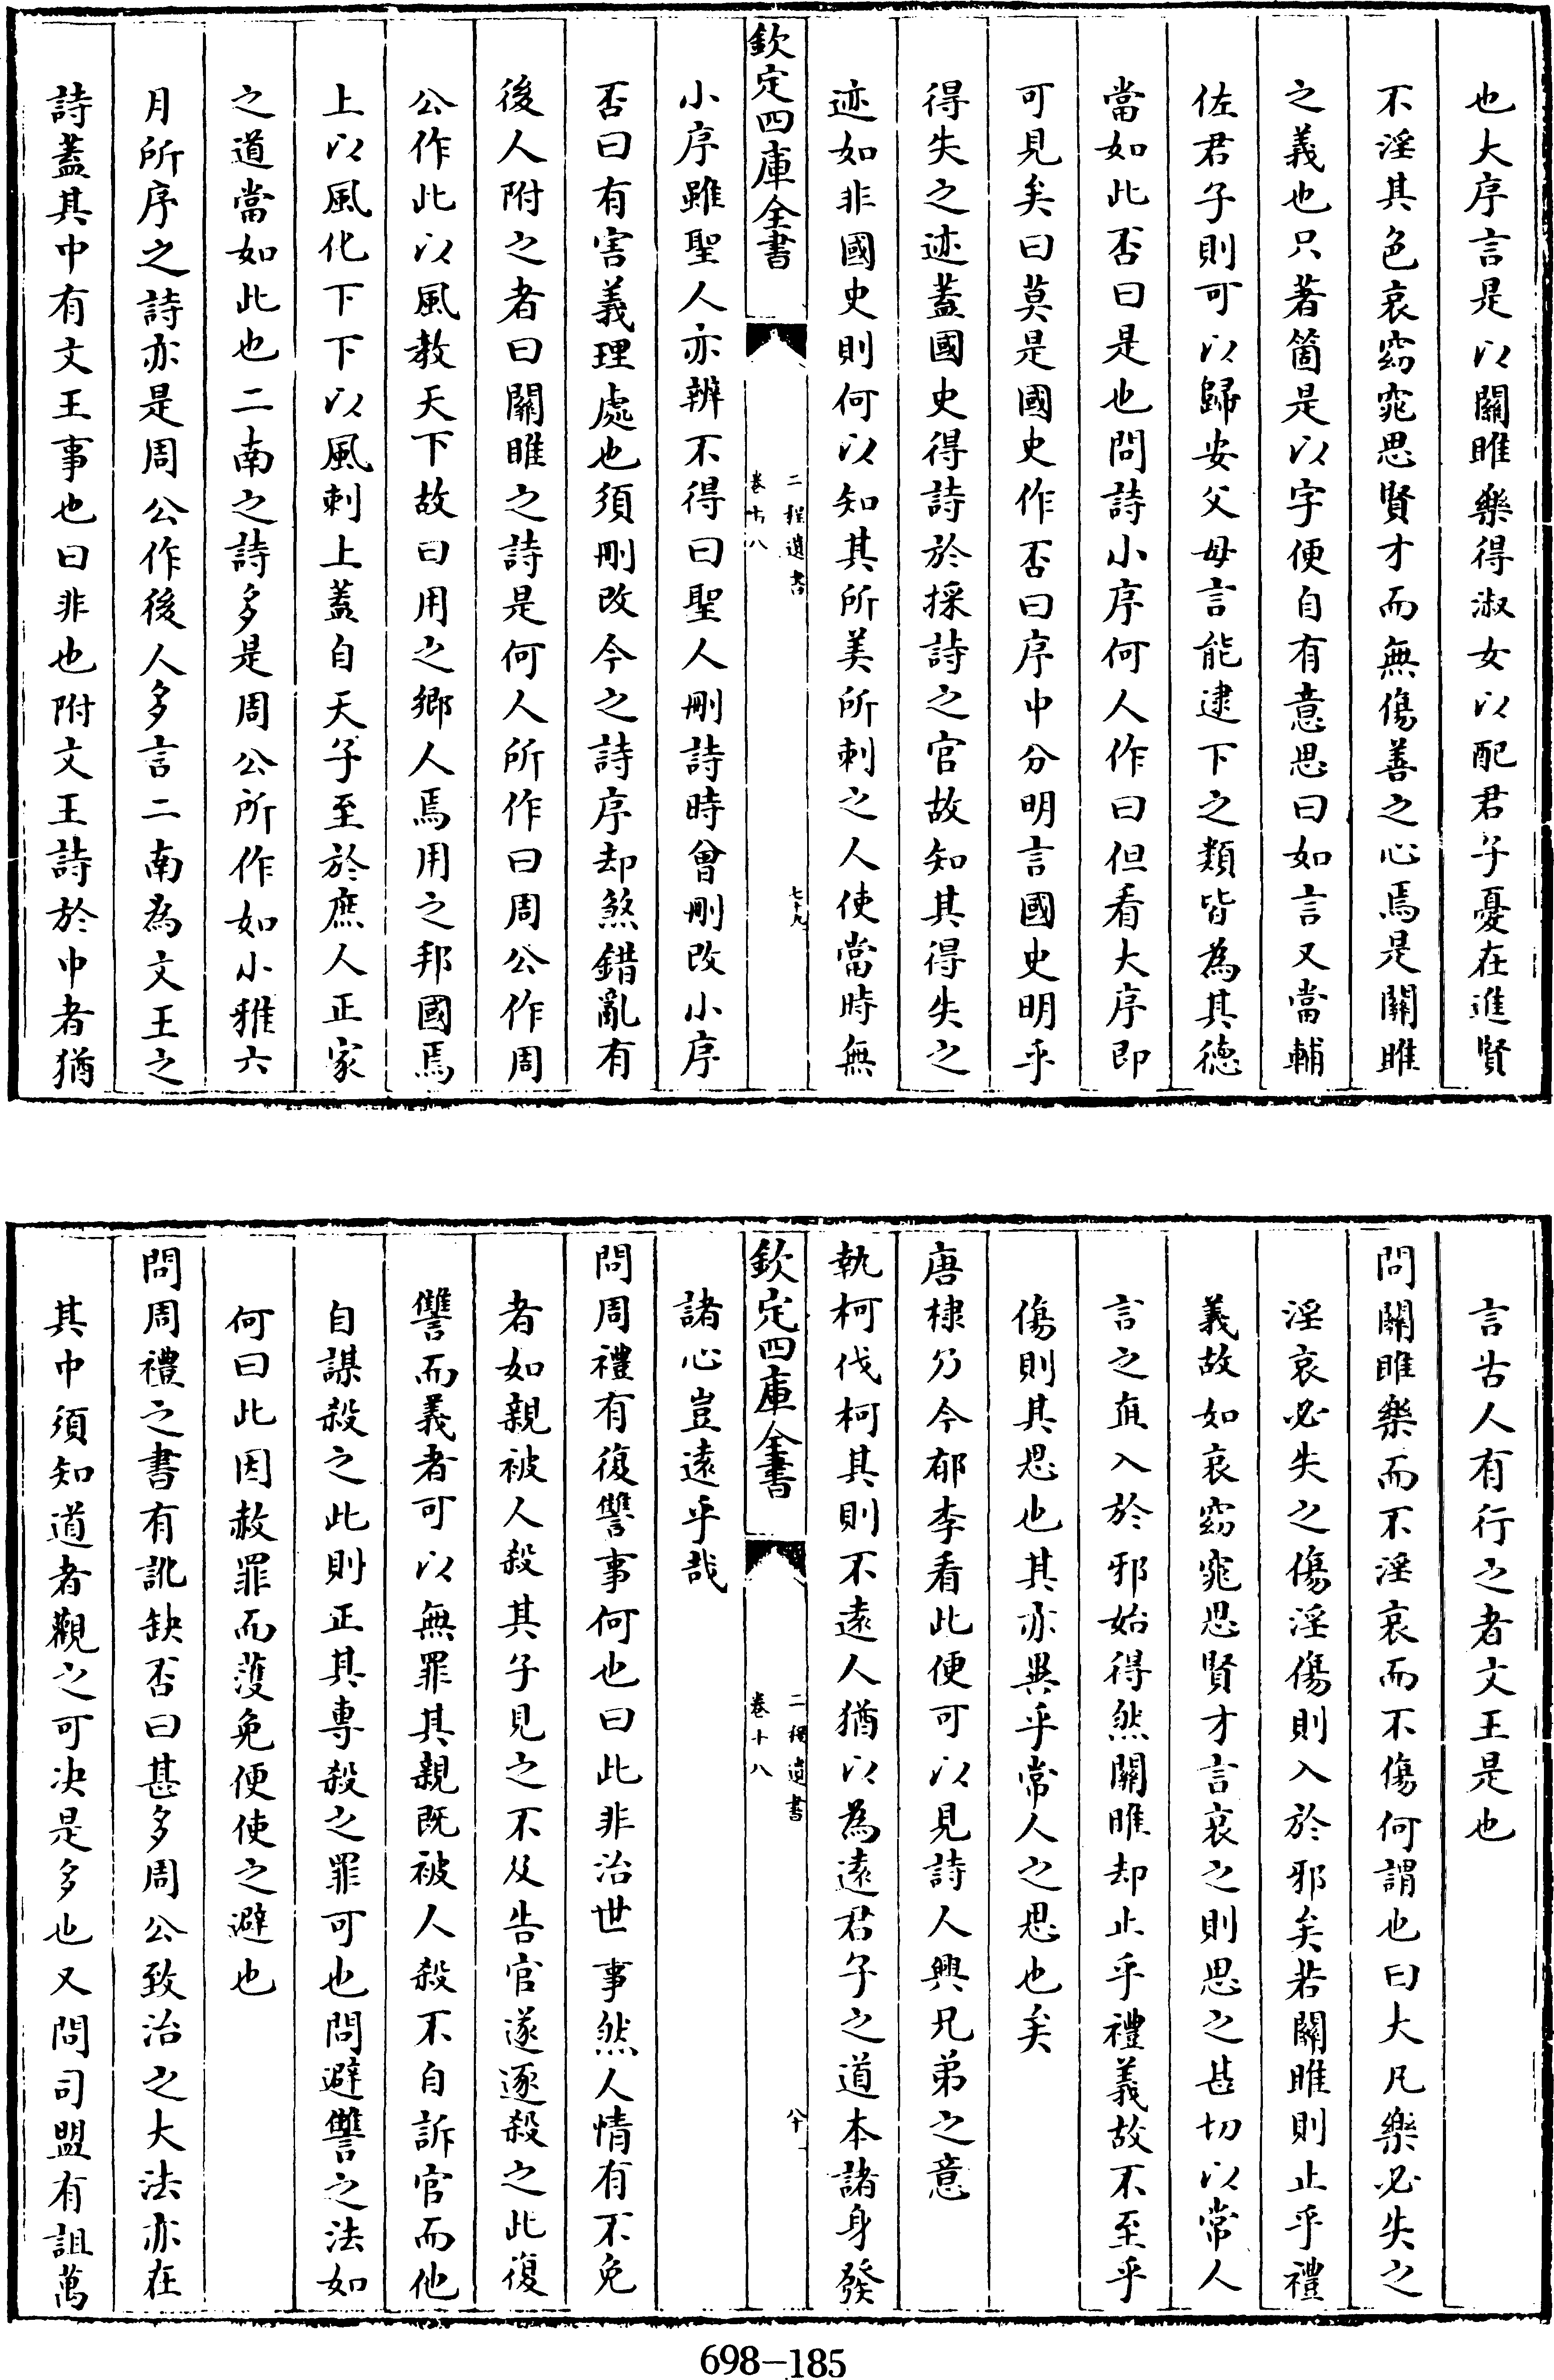 也大序言是以關雎樂得淑女以配君子憂在進賢
不淫其色哀窈窕思賢才而無傷善之心焉是關雎
之義也只著箇是以字便自有意思曰如言又當輔
佐君子則可以歸安父母言能逮下之類皆為其德
當如此否曰是也問詩小序何人作曰但看大序即
可見矣曰莫是國史作否曰序中分明言國史明乎
得失之迹蓋國史得詩於採詩之官故知其得失之
迹如非國史則何以知其所美所刺之人使當時無
欽定四庫全書
二程遺書
卷十八
七十九
小序雖聖人亦辨不得曰聖人刪詩時曾刪改小序
否曰有害義理處也須刪改今之詩序却煞錯亂有
後人附之者曰關雎之詩是何人所作曰周公作周
公作此以風教天下故曰用之鄉人焉用之邦國焉
上以風化下下以風刺上蓋自天子至於庶人正家
之道當如此也二南之詩多是周公所作如小雅六
月所序之詩亦是周公作後人多言二南為文王之
詩蓋其中有文王事也曰非也附文王詩於中者猶
言古人有行之者文王是也
問關雎樂而不淫哀而不傷何謂也曰大凡樂必失之
淫哀必失之傷淫傷則入於邪矣若關雎則止乎禮
義故如哀窈窕思賢才言哀之則思之甚切以常人
言之直入於邪始得然關雎却止乎禮義故不至乎
傷則其思也其亦異乎常人之思也矣
唐棣乃今郁李看此便可以見詩人興兄弟之意
執柯伐柯其則不遠人猶以為遠君子之道本諸身發
欽定四庫全書
二程遺書
卷十八
八十
諸心豈遠乎哉
問周禮有復讐事何也曰此非治世事然人情有不免
者如親被人殺其子見之不及告官遂逐殺之此復
讐而義者可以無罪其親既被人殺不自訴官而他
自謀殺之此則正其專殺之罪可也問避讐之法如
何曰此因赦罪而獲免便使之避也
問周禮之書有訛缺否曰甚多周公致治之大法亦在
其中須知道者觀之可决是多也又問司盟有詛萬
698-185